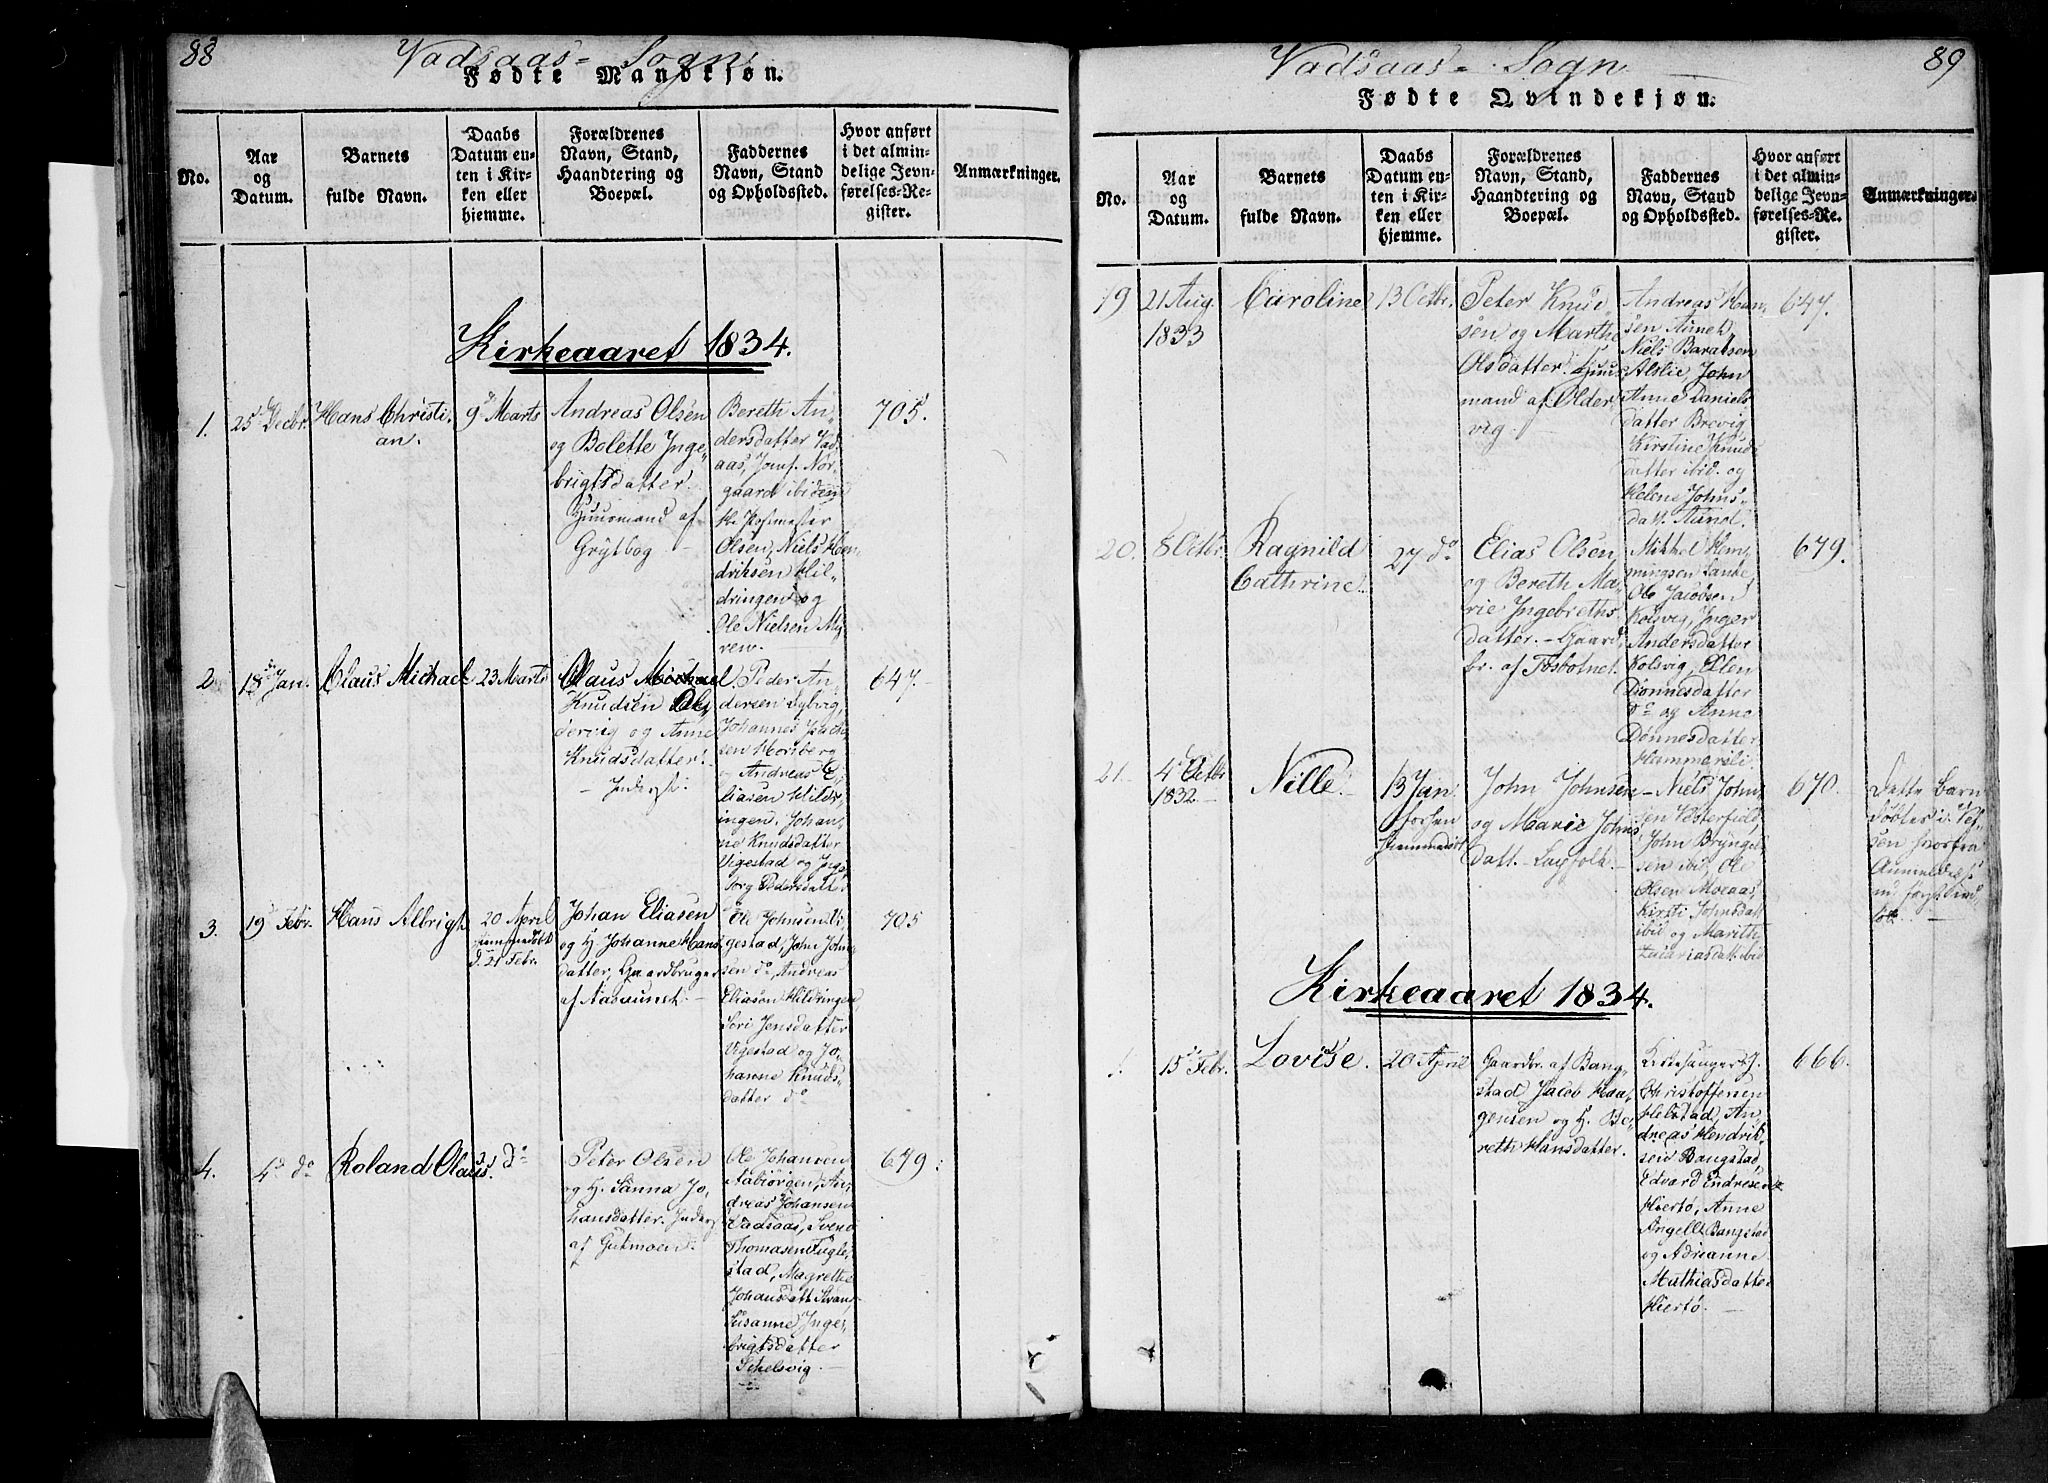 88
Vadsaas- Sogn.
Fødte Mandkjøn.
No.
Aar
og
Datum.
Barnets
fulde Navn.
Daabs
Datum en-
ten i Kir-
ken eller
hjemme.
Forældrenes
Navn, Stand,
Haandtering og
Boepæl.
Faddernes
Navn, Stand
og Opholdssted.
Hvor anført
i det almin-
delige Jevn-
førelses-Re-
gister.
Anmærkninger.
Kirkeaaret 1834.
1.
25 Decbr.
Hans Christi-
an.
9 Marts
Andreas Olsen
og Bolette Inge-
brigtsdatter
Huusmand af
Grytbog
Bereth An-
dersdatter Vad-
aas, Jomf. Nor-
gaard ibidem
Hr. Postmester
Olsen, Niels Hen-
driksen Hil-
dringen og
Ole Nielsen My-
ren.
705.
2
18 Jan.
Olaus Michael
23 Marts
Olaus Michael
Knudsen Ol-
dervig og Anne
Knudsdatter.
Inderst.
Peder An-
dersen
Johannes
sen Horsberg
Andreas E-
liasen Hildr-
ingen. Johan-
ne Knudsdatter
Vigestad og Inge-
borg Pedersdatter
647.
3.
19 Febr.
Hans Albrigt
20 April
hjemmedøbt
d. 21 Febr.
Johan Eliasen
og H. Johanne Hans-
datter, Gaardbruger
af Aasaunet.
Ole Johnsen Vi-
gestad, John John-
sen do, Andreas
Eliasen Hildringen,
Siri Jensdatter
Vigestad og Jo-
hanne Knuds-
datter do
705
4.
4 do
Roland Olaus.
do
Peter Olsen
og H. Sanna Jo-
hansdatter. Inderst
af Gutmoen.
Ole Johansen
Aabiörgen, An-
dreas Johansen
Vadsaas, Svend
Thomasen Fugle-
stad, Magrethe
Johansdatt.
Susanne Inge-
brigtsdatter
679.
89
Vadsaas- Sogn
Fødte Qvindekjøn.
No.
Aar
og
Datum.
Barnets
fulde Navn.
Daabs
Datum en-
ten i Kir-
ken eller
hjemme.
Forældrenes
Navn, Stand,
Haandtering og
Boepæl.
Faddernes
Navn, Stand
og Opholdssted.
Hvor anført
i det almin-
delige Jevn-
førelses-Re-
gister.
Anmærkninger.
19
21 Aug.
1833
Caroline
13 Octbr.
Peter Knud-
sen og Marthe
Olsdatter. Huus-
mand af Older-
vig.
Andreas Han-
sen Aunet,
Niels Baratsen
John
Anne Daniels-
datter Brevig
Kirstine Knuds-
datter ibid. og
Helene Johns-
datt.
647.
20.
8 Octbr.
Ragnild
Cathrine.
27 do
Elias Olsen
og Bereth Ma-
rie Ingebreths-
datter.- Gaard-
br. af Fosbotnet.
Mikkel Hem-
mingsen
Ole Jacobsen
Kolsvig, Inger
Andersdatter
Kolsvig, Ellen
Dönnesdatter
do og Anne
Dönnesdatter
Hammersli.
679.
21.
4 Octbr
1832
Nille.
13 Jan:
John Johnsen
og Marie Johns-
datt.
Niels John-
sen Vesterfield,
John Bryngel-
sen ibid, Ole
Olsen Moeaas,
Kirsti Johnsdatt
ibid og Marithe
Zacariasdatt. ibid
670.
Dette Barn
Kirkeaaret 1834.
1.
15 Febr.
Lovise.
20 April
Gaardbr. af Bang-
stad Jacob Haa-
gensen og H. Be-
reth Hansdatter.
Kirkesanger J.
Christoffersen
Helstad, An-
dreas Hendrik-
sen Bangstad,
Edvard Endresen
Hiertø, Anne
Angell Bangstad
og Adrianne
Mathiasdatter
Hiertø.
666.